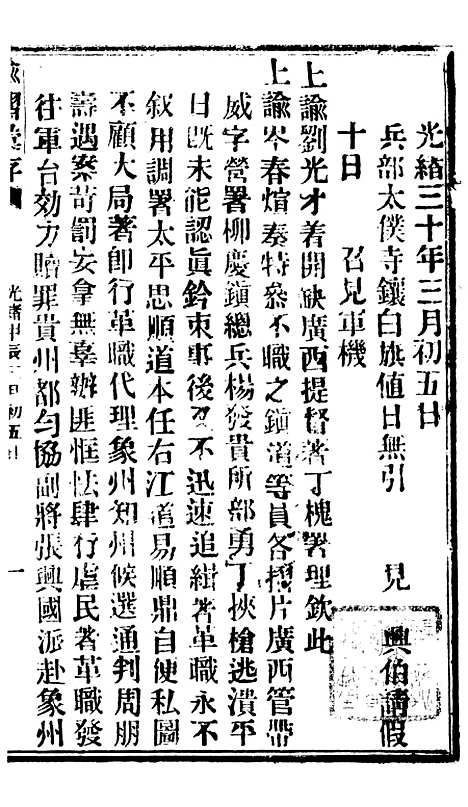 光緒三十年三月初五日
兵部太僕寺鑲白旗值日無引　見　興伯請假
十日　召見軍機
上諭劉光才着開缺廣西提督著丁槐署理欽此
上諭岑春煊奏特參不職之鎮道等員各摺片廣西管帶
威字營署柳慶鎮總兵楊發貴所部勇丁挾槍逃潰平
日既未能認眞鈐束事後又不迅速追緝著革職永不
敘用調署太平思順道本任右江道易順鼎自便私圖
不顧大局著卽行革職代理象州知州候選通判周朋
壽遇案苛罰妄拿無辜辦匪恇怯肆行虐民著革職發
往軍台効力贖罪貴州都勻協副將張興國派赴象州
諭摺彙存
光緒甲辰三月初五日
一